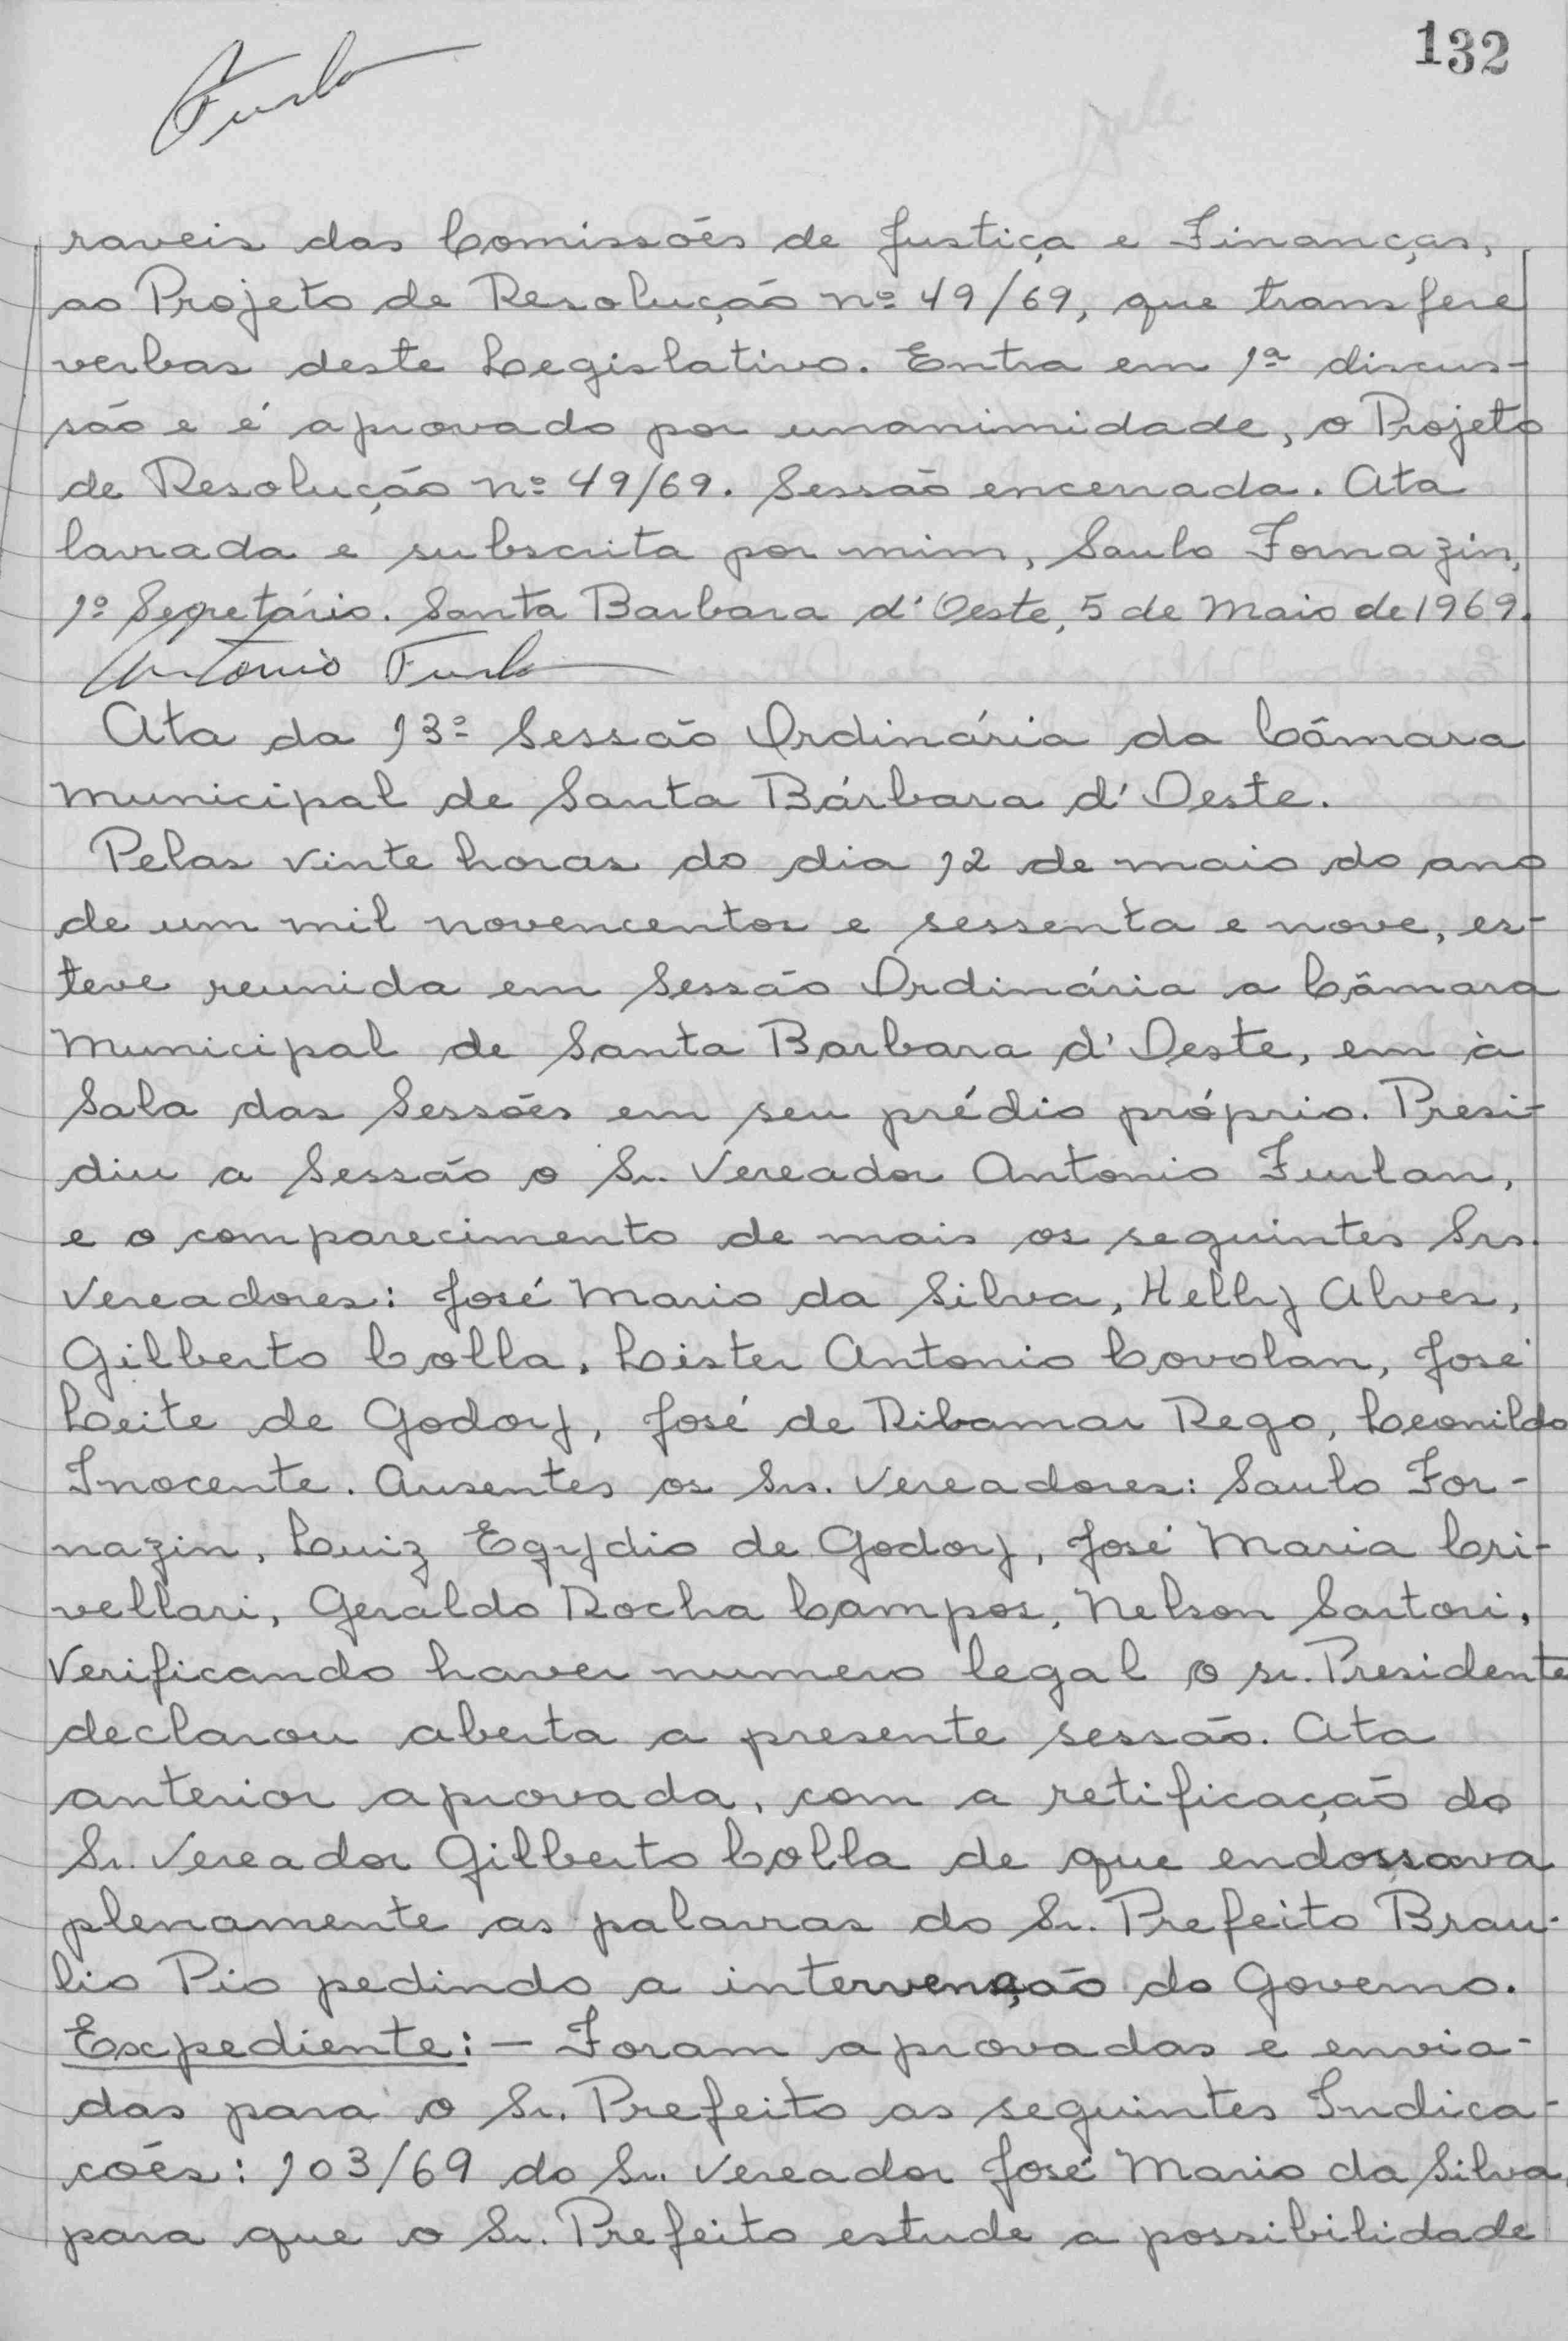 132
Furlan
raveis das Comissões de Justiça e Finanças,
ao Projeto de Resolução nº 49/69, que transfere
verbas deste Legislativo. Entra em 1ª discus-
são e é aprovado por unanimidade, o Projeto
de Resolução nº 49/69. Sessão encerrada. Ata
lavrada e subscrita por mim, Saulo Fornazin,
1º Segretário. Santa Barbara d'Oeste, 5 de Maio de 1969.
Antonio Furlan
Ata da 13º Sessão Ordinária da Câmara
Municipal de Santa Bárbara d'Oeste.
Pelas vinte horas do dia 12 de maio do ano
de um mil novencentos e sessenta e nove, es-
teve reunida em Sessão Ordinária a Câmara
Municipal de Santa Barbara d'Oeste, em à
Sala das Sessões em seu prédio próprio. Presi-
diu a Sessão o Sr. Vereador Antonio Furlan,
e o comparecimento de mais os seguintes Srs.
Vereadores: José Mario da Silva, Helly Alves,
Gilberto Colla, Lister Antonio Covolan, José
Leite de Godoy, José de Ribamar Rego, Leonildo
Inocente. Ausentes os Srs. Vereadores: Saulo For-
nazin, Luiz Egydio de Godoy, José Maria Cri-
vellari, Geraldo Rocha Campos, Nelson Sartori,
Verificando haver numero legal o sr. Presidente
declarou aberta a presente sessão. Ata
anterior aprovada, com a retificação do
Sr. Vereador Gilberto Colla de que endossava
plenamente as palavras do Sr. Prefeito Brau-
lio Pio pedindo a intervenção do Governo.
Expediente: - Foram aprovadas e envia-
das para o Sr. Prefeito as seguintes Indica-
cões: 103/69 do Sr. Vereador José Mario da Silva,
para que o Sr. Prefeito estude a possibilidade